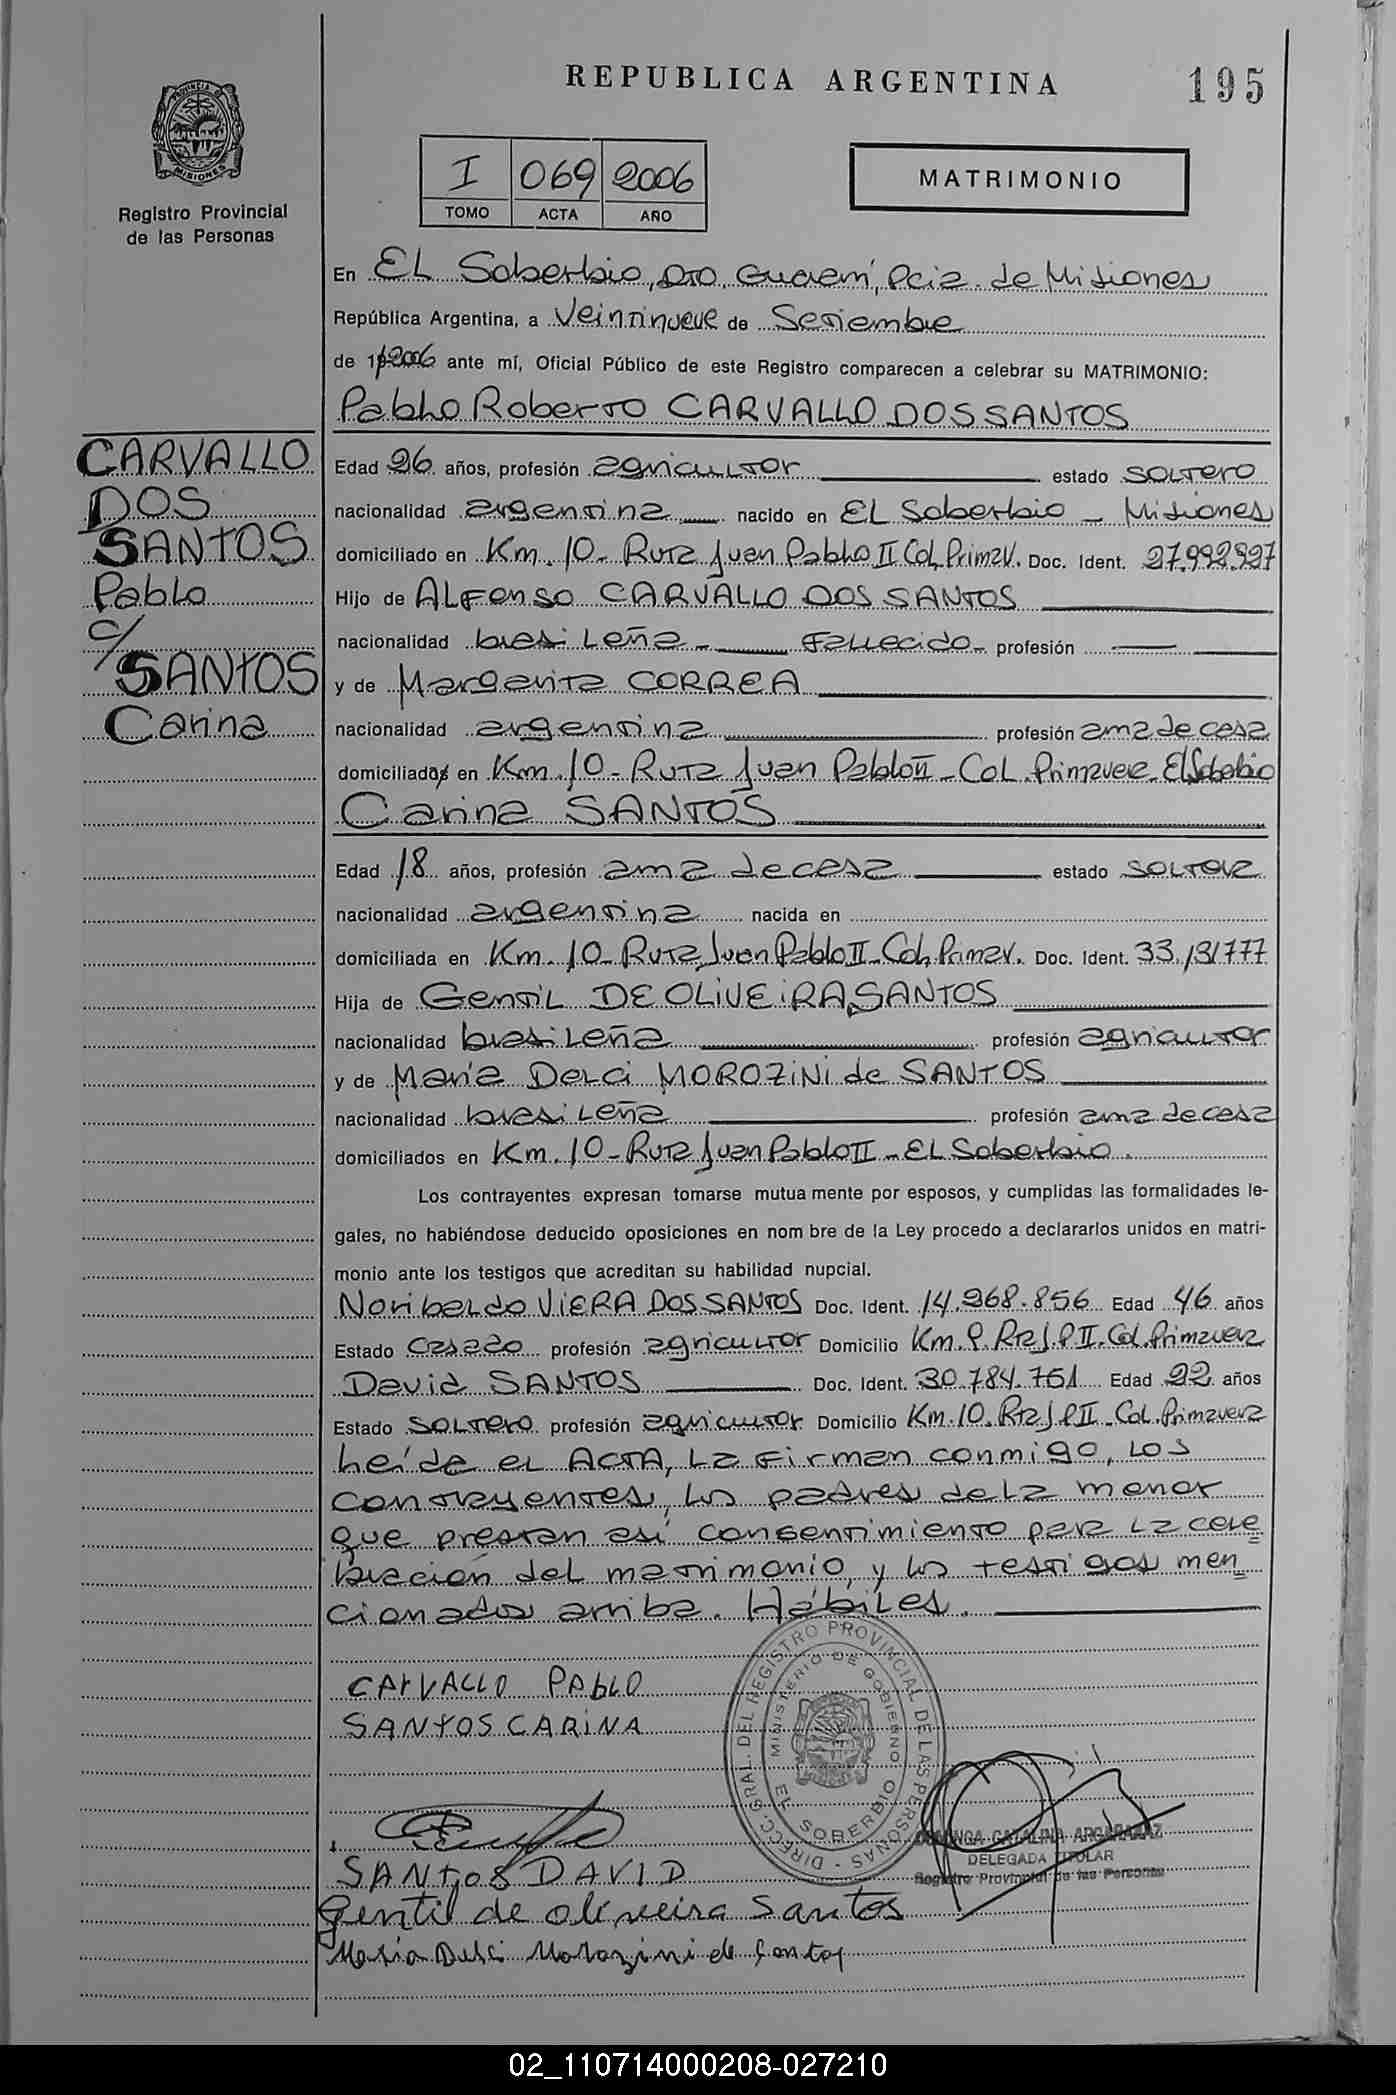 REPUBLICA ARGENTINA
195
PROVINCIA DE MISIONES
Registro Provincial
de las Personas
I 069 2006
TOMO ACTA AÑO
MATRIMONIO
En EL Soberbio, Dto. Guaraní, Pcia. de Misiones
República Argentina, a Veintinueve de Setiembre
de 2006 ante mí, Oficial Público de este Registro comparecen a celebrar su MATRIMONIO:
Pablo Roberto CARVALLO DOS SANTOS
CARVALLO
DOS
SANTOS
Pablo
c/
SANTOS
Carina
Edad 26 años, profesión agricultor estado soltero
nacionalidad argentina nacido en EL Soberbio - Misiones
domiciliado en Km. 10 - Ruta Juan Pablo II Col. Primav. Doc. Ident. 27.992.927
Hijo de ALFonso CARVALLO DOS SANTOS
nacionalidad brasileña - Fallecido - profesión
y de Margarita CORREA
nacionalidad argentina profesión ama de casa
domiciliados en Km. 10 - Ruta Juan Pablo II - Col. Primavera - El Soberbio
Carina SANTOS
Edad 18 años, profesión ama de casa estado soltera
nacionalidad argentina nacida en
domiciliada en Km. 10 - Ruta Juan Pablo II - Col. Primav. Doc. Ident. 33.131777
Hija de Gentil DE OLIVEIRA SANTOS
nacionalidad brasileña profesión agricultor
y de María Delci MOROZINI de SANTOS
nacionalidad brasileña profesión ama de casa
domiciliados en Km. 10 - Ruta Juan Pablo II - EL Soberbio.
Los contrayentes expresan tomarse mutua mente por esposos, y cumplidas las formalidades le-
gales, no habiéndose deducido oposiciones en nom bre de la Ley procedo a declararlos unidos en matri-
monio ante los testigos que acreditan su habilidad nupcial.
Noribaldo VIERA DOS SANTOS Doc. Ident. 14.968.856 Edad 46 años
Estado casado profesión agricultor Domicilio Km. 9. Rta J.P II. Col. Primavera
David SANTOS Doc. Ident. 30.784.751 Edad 22 años
Estado soltero profesión agricultor Domicilio Km. 10. Rta J P II - Col. Primavera
Leída el ACTA, La Firman conmigo, Los
contrayentes, los padres de la menor
que prestan así consentimiento para la cele=
bración del matrimonio, y los testigos men=
cionados arriba. Hábiles.
CARVALLO PABLO
SANTOS CARINA
DIRECC. GRAL. DEL REGISTRO PROVINCIAL DE LAS PERSONAS -
MINISTERIO DE GOBIERNO
EL SOBERBIO
SANTOS DAVID
CATALINA
DELEGADA TITULAR
Registro Provincial de las Personas
Gentil de oliveira Santos
Maria Delci Morozini de Santos
02_110714000208-027210